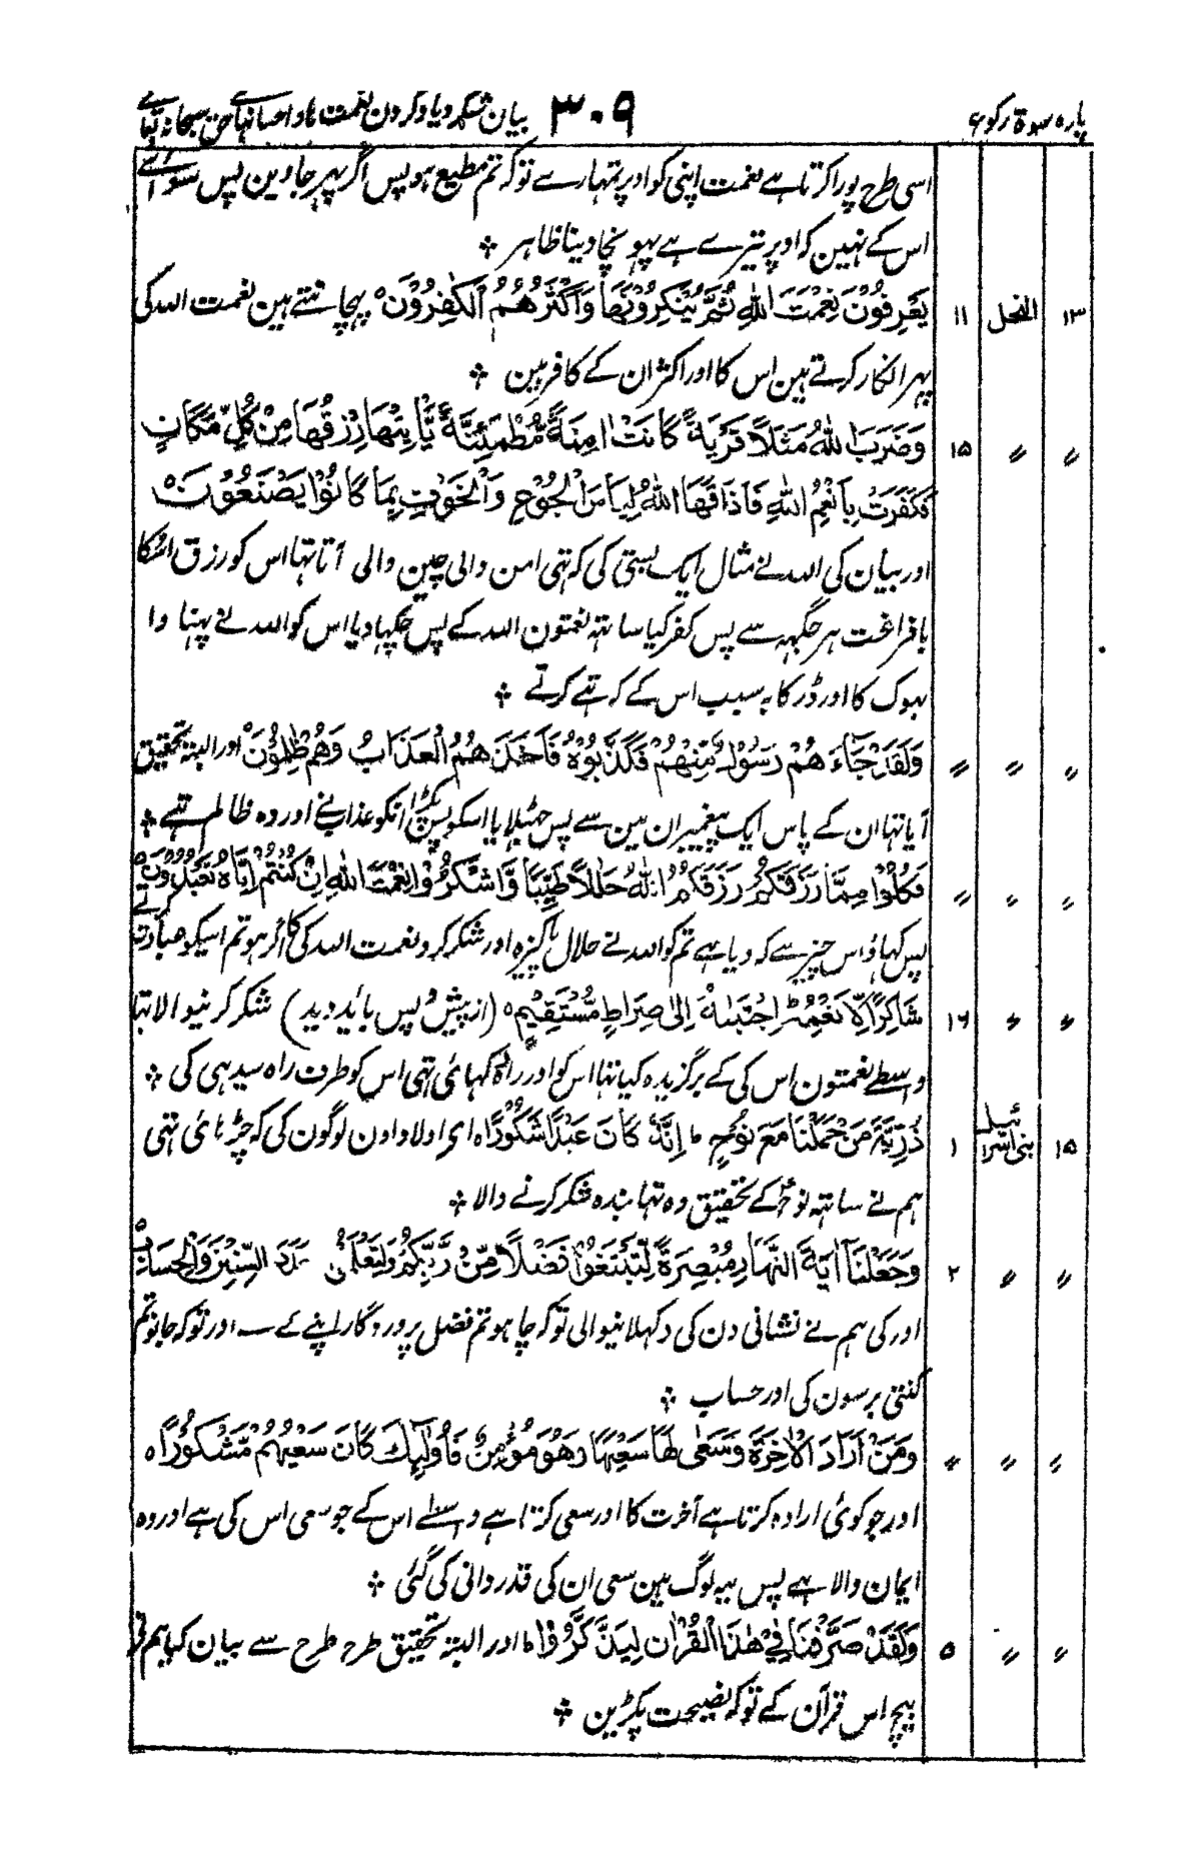 پارہ سورۃ رکوع ۳۰۹ بیان شکر و یاد کردن نعمت ہا و احسانہاے حق سبحانہ تعالیٰ
اسی طرح پورا کرتا ہے نعمت اپنی کو اوپر تمہارے تو کہ تم مطیع ہو پس اگر پہر جاوین پس سوائے
اس کے نہین کہ اوپر تیرے ہے پہونچا دینا ظاہر ⁘
۱۳ النحل ۱۱ يَعْرِفُوْنَ نِعْمَتَ اللّٰهِ ثُمَّ يُنْكِرُوْنَهَا وَاَكْثَرُهُمُ الْكٰفِرُوْنَ ہ پہچانتے ہین نعمت اللہ کی
پہر انکار کرتے ہین اس کا اور اکثر ان کے کافر ہین ⁘
〃 〃 ۱۵ وَضَرَبَ اللّٰهُ مَثَلًا قَرْيَةً كَانَتْ اٰمِنَةً مُّطْمَئِنَّةً يَّاْتِيْهَا رِزْقُهَا مِنْ كُلِّ مَكَانٍ
فَكَفَرَتْ بِاَنْعُمِ اللّٰهِ فَاَذَاقَهَا اللّٰهُ لِبَاسَ الْجُوْعِ وَالْخَوْفِ بِمَا كَانُوْا يَصْنَعُوْنَ ہ
اور بیان کی اللہ نے مثال ایک بستی کی کہ تہی امن والی چین والی آتا تہا اس کو رزق اسکا
بافراغت ہر جگہہ سے پس کفر کیا ساتہہ نعمتون اللہ کے پس چکہا دیا اس کو اللہ نے پہنا وا
بہوک کا اور ڈر کا بہ سبب اس کے کہ تہے کرتے ⁘
〃 〃 〃 وَلَقَدْ جَآءَهُمْ رَسُوْلٌ مِّنْهُمْ فَكَذَّبُوْهُ فَاَخَذَهُمُ الْعَذَابُ وَهُمْ ظٰلِمُوْنَ ہ اور البتہ تحقیق
آیا تہا ان کے پاس ایک پیغمبر ان مین سے پس جہٹلایا اسکو پس پکڑا انکو عذاب نے اور وہ ظالم تہے ⁘
〃 〃 〃 فَكُلُوْا مِمَّا رَزَقَكُمُ اللّٰهُ حَلٰلًا طَيِّبًا وَّاشْكُرُوْا نِعْمَتَ اللّٰهِ اِنْ كُنْتُمْ اِيَّاهُ تَعْبُدُوْنَ ہ
پس کہاؤ اس چیز سے کہ دیا ہے تم کو اللہ نے حلال پاکیزہ اور شکر کرو نعمت اللہ کی کا اگر ہو تم اسیکو عبادت کرتے
〃 〃 ۱۶ شَاكِرًا لِّاَنْعُمِهٖ اِجْتَبٰىهُ اِلٰى صِرَاطٍ مُّسْتَقِيْمٍ ہ (از پیش و پس باید دید) شکر کرنیوالا تہا
واسطے نعمتون اس کی کے برگزیدہ کیا تہا اس کو اور راہ دکہائی تہی اس کو طرف راہ سیدہی کی ⁘
۱۵ بنی اسرائیل ۱ ذُرِّيَّةَ مَنْ حَمَلْنَا مَعَ نُوْحٍ ؕ اِنَّهٗ كَانَ عَبْدًا شَكُوْرًا ہ اے اولاد اون لوگون کی کہ چڑہائی تہی
ہم نے ساتہہ نوحؑ کے تحقیق وہ تہا بندہ شکر کرنے والا ⁘
〃 〃 ۲ وَجَعَلْنَآ اٰيَةَ النَّهَارِ مُبْصِرَةً لِّتَبْتَغُوْا فَضْلًا مِّنْ رَّبِّكُمْ وَلِتَعْلَمُوْا عَدَدَ السِّنِيْنَ وَالْحِسَابَ
اور کی ہم نے نشانی دن کی دکہلانیوالی تو کہ چاہو تم فضل پروردگار اپنے کے سے اور تو کہ جانو تم
گنتی برسون کی اور حساب ⁘
〃 〃 〃 وَمَنْ اَرَادَ الْاٰخِرَةَ وَسَعٰى لَهَا سَعْيَهَا وَهُوَ مُؤْمِنٌ فَاُولٰٓئِكَ كَانَ سَعْيُهُمْ مَّشْكُوْرًا ہ
اور جو کوئی ارادہ کرتا ہے آخرت کا اور سعی کرتا ہے واسطے اس کے جو سعی اس کی ہے اور وہ
ایمان والا ہے پس یہہ لوگ ہین سعی ان کی قدر دانی کی گئی ⁘
〃 〃 ۵ وَلَقَدْ صَرَّفْنَا فِيْ هٰذَا الْقُرْاٰنِ لِيَذَّكَّرُوْا ؕ اور البتہ تحقیق طرح طرح سے بیان کیا ہم نے
بیچ اس قرآن کے تو کہ نصیحت پکڑین ⁘